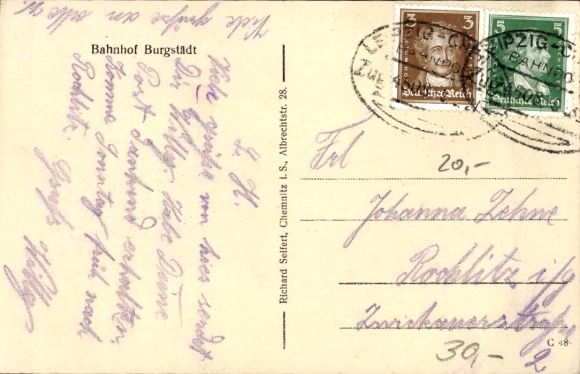 Viele Grüße an alle
Bahnhof Burgstädt
L. H.
Viele Grüße von hier sendet
Dir Willy. Habe Deine
Karte dankend erhalten
komme Sonntag früh nach
Rochlitz.
Gruß Willy
Richard Seifert, Chemnitz i. S., Albrechtstr. 28.
3 3
Deutsches Reich
5 5
Deutsches Reich
LEIPZIG-
BAHNPO
20,-
Frl
Johanna Zehne
Rochlitz i/S
Zwickauerstraße
2
C 48
30,-